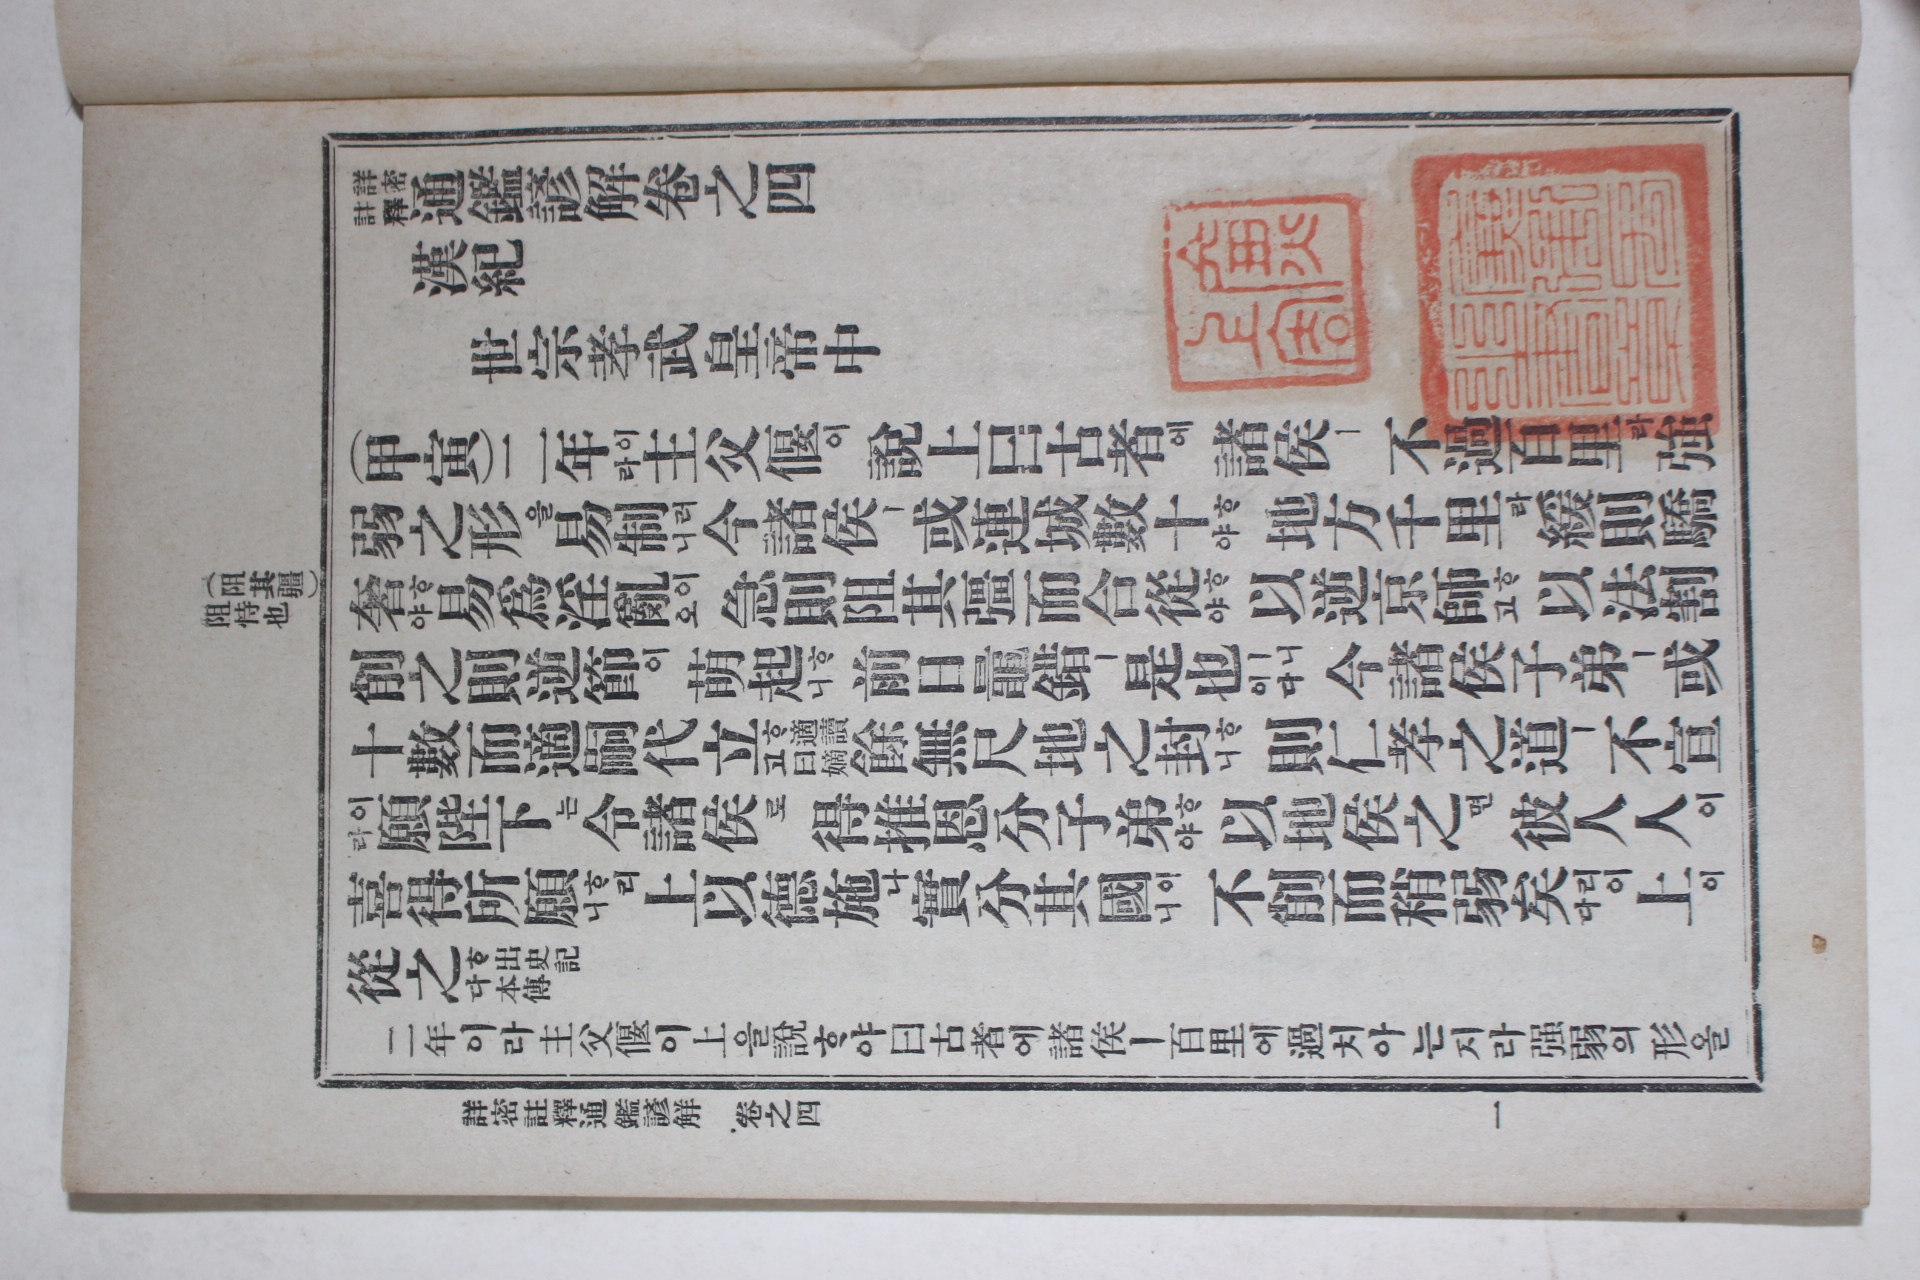 詳密註釋通鑑諺解卷之四
漢紀
世宗孝武皇帝中
(甲寅)二年이라主父偃이說上曰古者에諸侯ㅣ不過百里라強
弱之形을易制러니今諸侯ㅣ或連城數十ᄒᆞ야地方千里라緩則驕
奢ᄒᆞ야易爲淫亂이오急則阻其彊而合從ᄒᆞ야以逆京師ᄒᆞ고以法割
削之則逆節이萌起ᄒᆞ니前日鼂錯ㅣ是也ㅣ니이다今諸侯子弟ㅣ或
十數而適嗣代立ᄒᆞ고適讀曰嫡餘無尺地之封ᄒᆞ니則仁孝之道ㅣ不宣
이라願陛下는令諸侯로得推恩分子弟ᄒᆞ야以地侯之면彼人人이
喜得所願ᄒᆞ리니上以德施나實分其國이니不削而稍弱矣리이다上이
從之ᄒᆞ다出史記本傳
二年이라主父偃이上을說ᄒᆞ야曰古者에諸侯ㅣ百里에過치아는지라强弱의形을
(阻其彊)阻恃也
詳密註釋通鑑諺解 卷之四 一